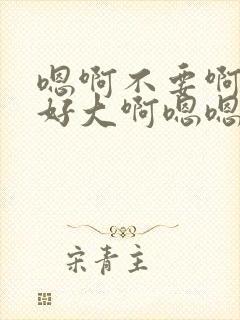 嗯啊不要啊
好大啊嗯嗯
宋青主